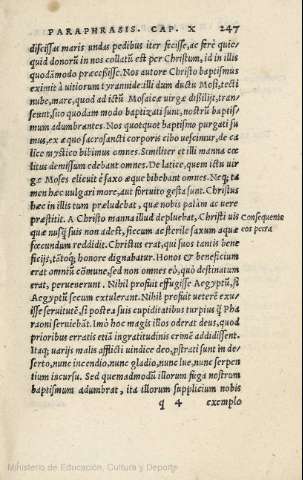 PARAPHRASIS. CAP. X 247
discissas maris undas pedibus iter fecisse, ac ferè quic-
quid donorũ in nos collatũ est per Christum, id in illis
quodãmodo præcessisse. Nos autore Christo baptismus
eximit à uitiorum tyrannide: illi dum ductu Mosi, tecti
nube, mare, quod ad ictũ Mosaicæ uirgæ dissilijt, trans-
eunt, suo quodam modo baptizati sunt, nostrũ baptis-
mum adumbrantes. Nos quotquot baptismo purgati su-
mus, ex æquo sacrosancti corporis cibo uescimur, de ca
lice mystico bibimus omnes. Similiter et illi manna coe
litus demissum edebant omnes. De latice, quem ictu uir
gæ Moses elicuit è saxo æque bibebant omnes. Neq; ta
men hæc uulgari more, aut fortuito gesta sunt. Christus
hæc in illis tum præludebat, quæ nobis palàm ac uere
præstitit. A Christo manna illud depluebat, Christi uis
quæ nusq̃ suis non adest, siccum ac sterile saxum aquæ
foecundum reddidit. Christus erat, qui suos tantis bene
ficijs, tãtoq; honore dignabatur. Honos & beneficium
erat omniũ cõmune, sed non omnes eò, quò destinatum
erat, peruenerunt. Nihil profuit effugisse Aegyptũ, si
Aegyptũ secum extulerant. Nihil profuit uetere exuis-
isse seruitute, si postea suis cupiditatibus turpius q̃ Pha
raoni seruiebãt. Imò hoc magis illos oderat deus, quod
prioribus erratis etiã ingratitudinis crimẽ addidissent.
Itaq; uarijs malis afflicti uindice deo, p̃strati sunt in de-
serto, nunc incendio, nunc gladio, nunc lue, nunc serpen
tium incursu. Sed quemadmodũ illorum fuga nostrum
baptismum adumbrat, ita illorum supplicium nobis
q 4 exemplo
Consequente
eos petra
Ministerio de Educación, Cultura y Deporte